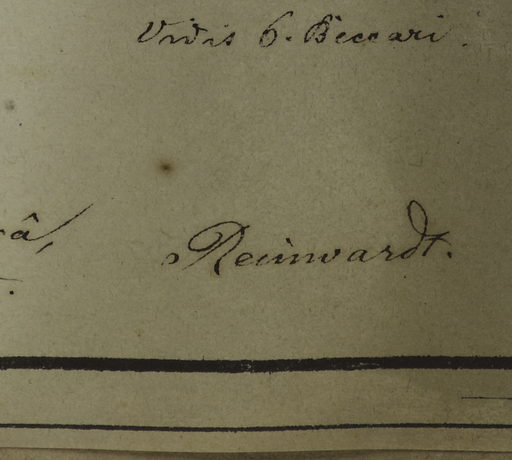 Vidis 6. Beccari.
â,
Reinwardt.